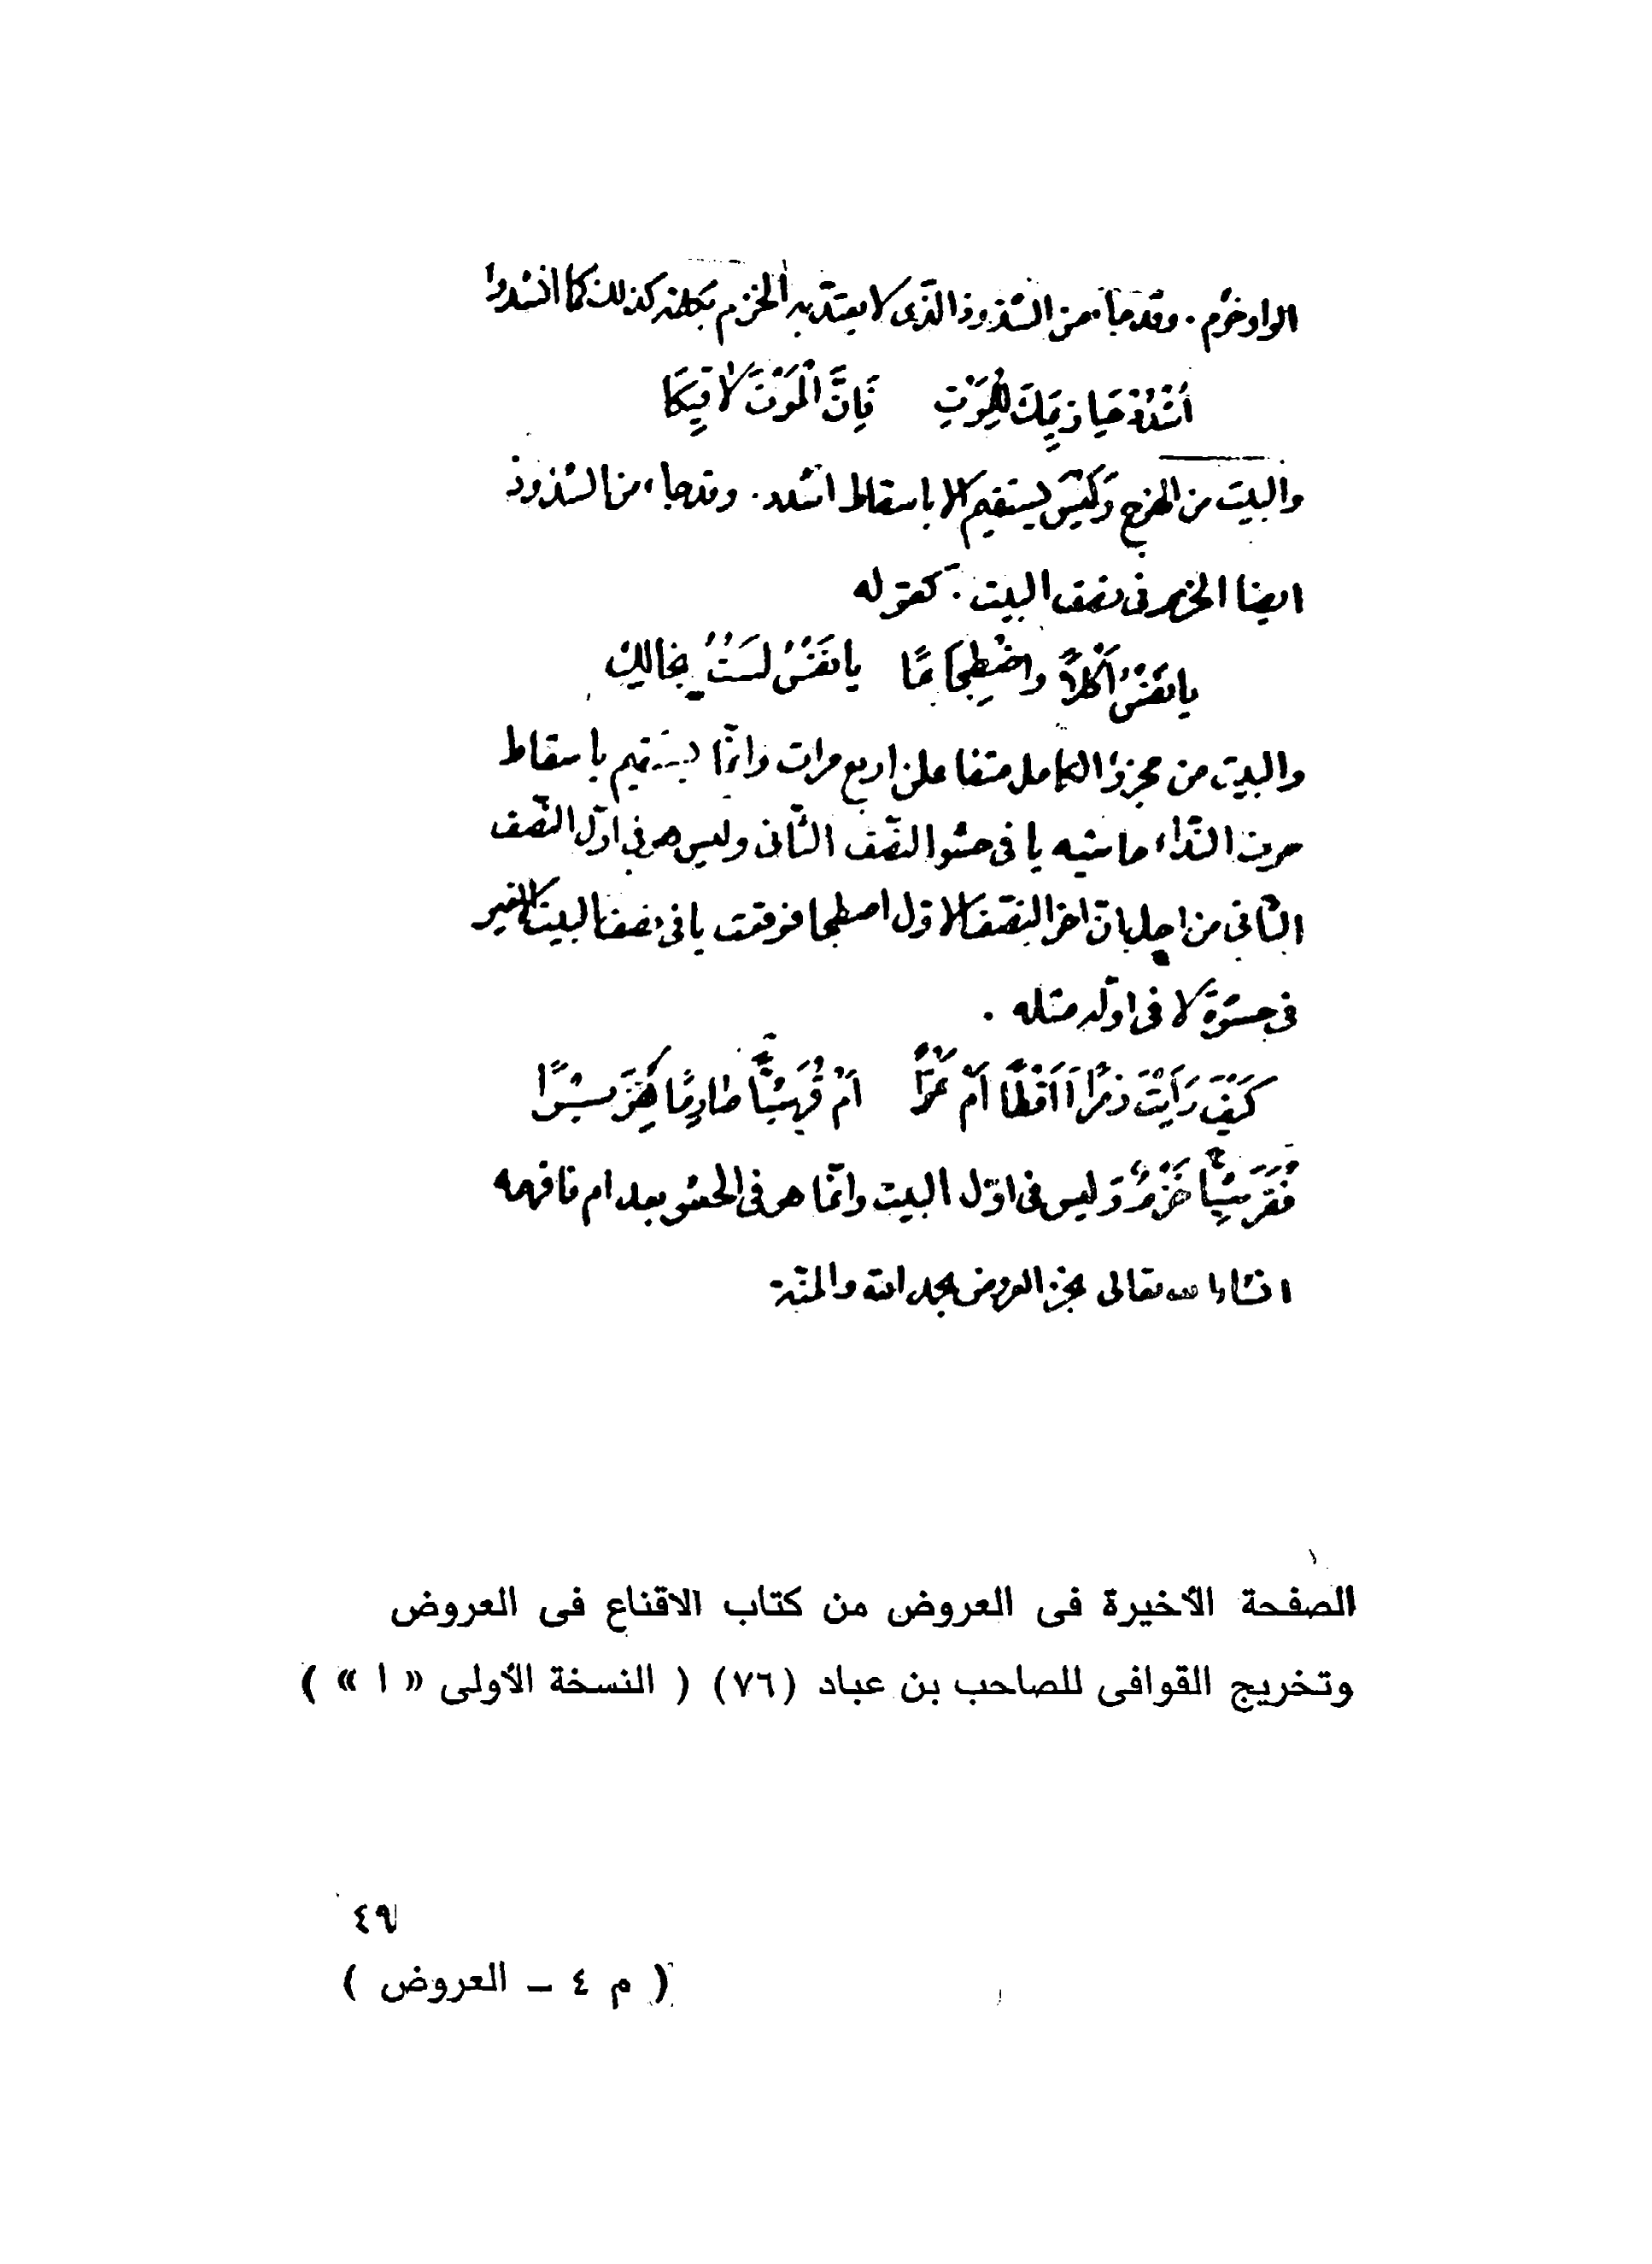 الواو خزم . وقد جاء من الشذوذ الذى لا يعتد به الخزم بكلمة كذلك كما انشدوا
اُشْدُدْ حَيَازِيمَكَ لِلْمَوْتِ فَإِنَّ الْمَوْتَ لَاقِيكَا
والبيت من الهزج وَلَيْسَ يستقيم الا باسقاط اشدد . وقد جاء من الشذوذ
ايضا الخزم فى نصف البيت . كقوله
يا نَفْسُ أَكْلاً واضْطِجَاعًا يا نَفْسُ لَسْتُ بخالده
والبيت من مجزوا الكامل متفاعلن اربع مرات وانّما يستقيم باسقاط
حرف النّداء حاشيه يا فى حشو النصّف الثّانى وليس هو فى اوّل النّصف
الثّانى من اجل انّ اخر النّصف الاوّل اضطجا فوقعت يا فى نصف البيت الاخير
فى حشوة لا فى اوّله مثله .
كَيْفَ رَأَيْتَ زَبْرًا أَاَقْطًا أَمْ تَمْرًا أَمْ قُرَيْشِيًّا صَارِمًا هِزَبْرًا
فَقُرَيْشِيًّا خَزْمٌ وَليس فى اوّل البيت وانّما هو فى الحشو بعد ام فافهمه
ان شاء الله تعالى نجز العروض بحمد الله والمنّة
الصفحة الأخيرة فى العروض من كتاب الاقناع فى العروض
وتخريج القوافى للصاحب بن عباد (٧٦) ( النسخة الأولى « ا » )
٤٩
( م ٤ – العروض )